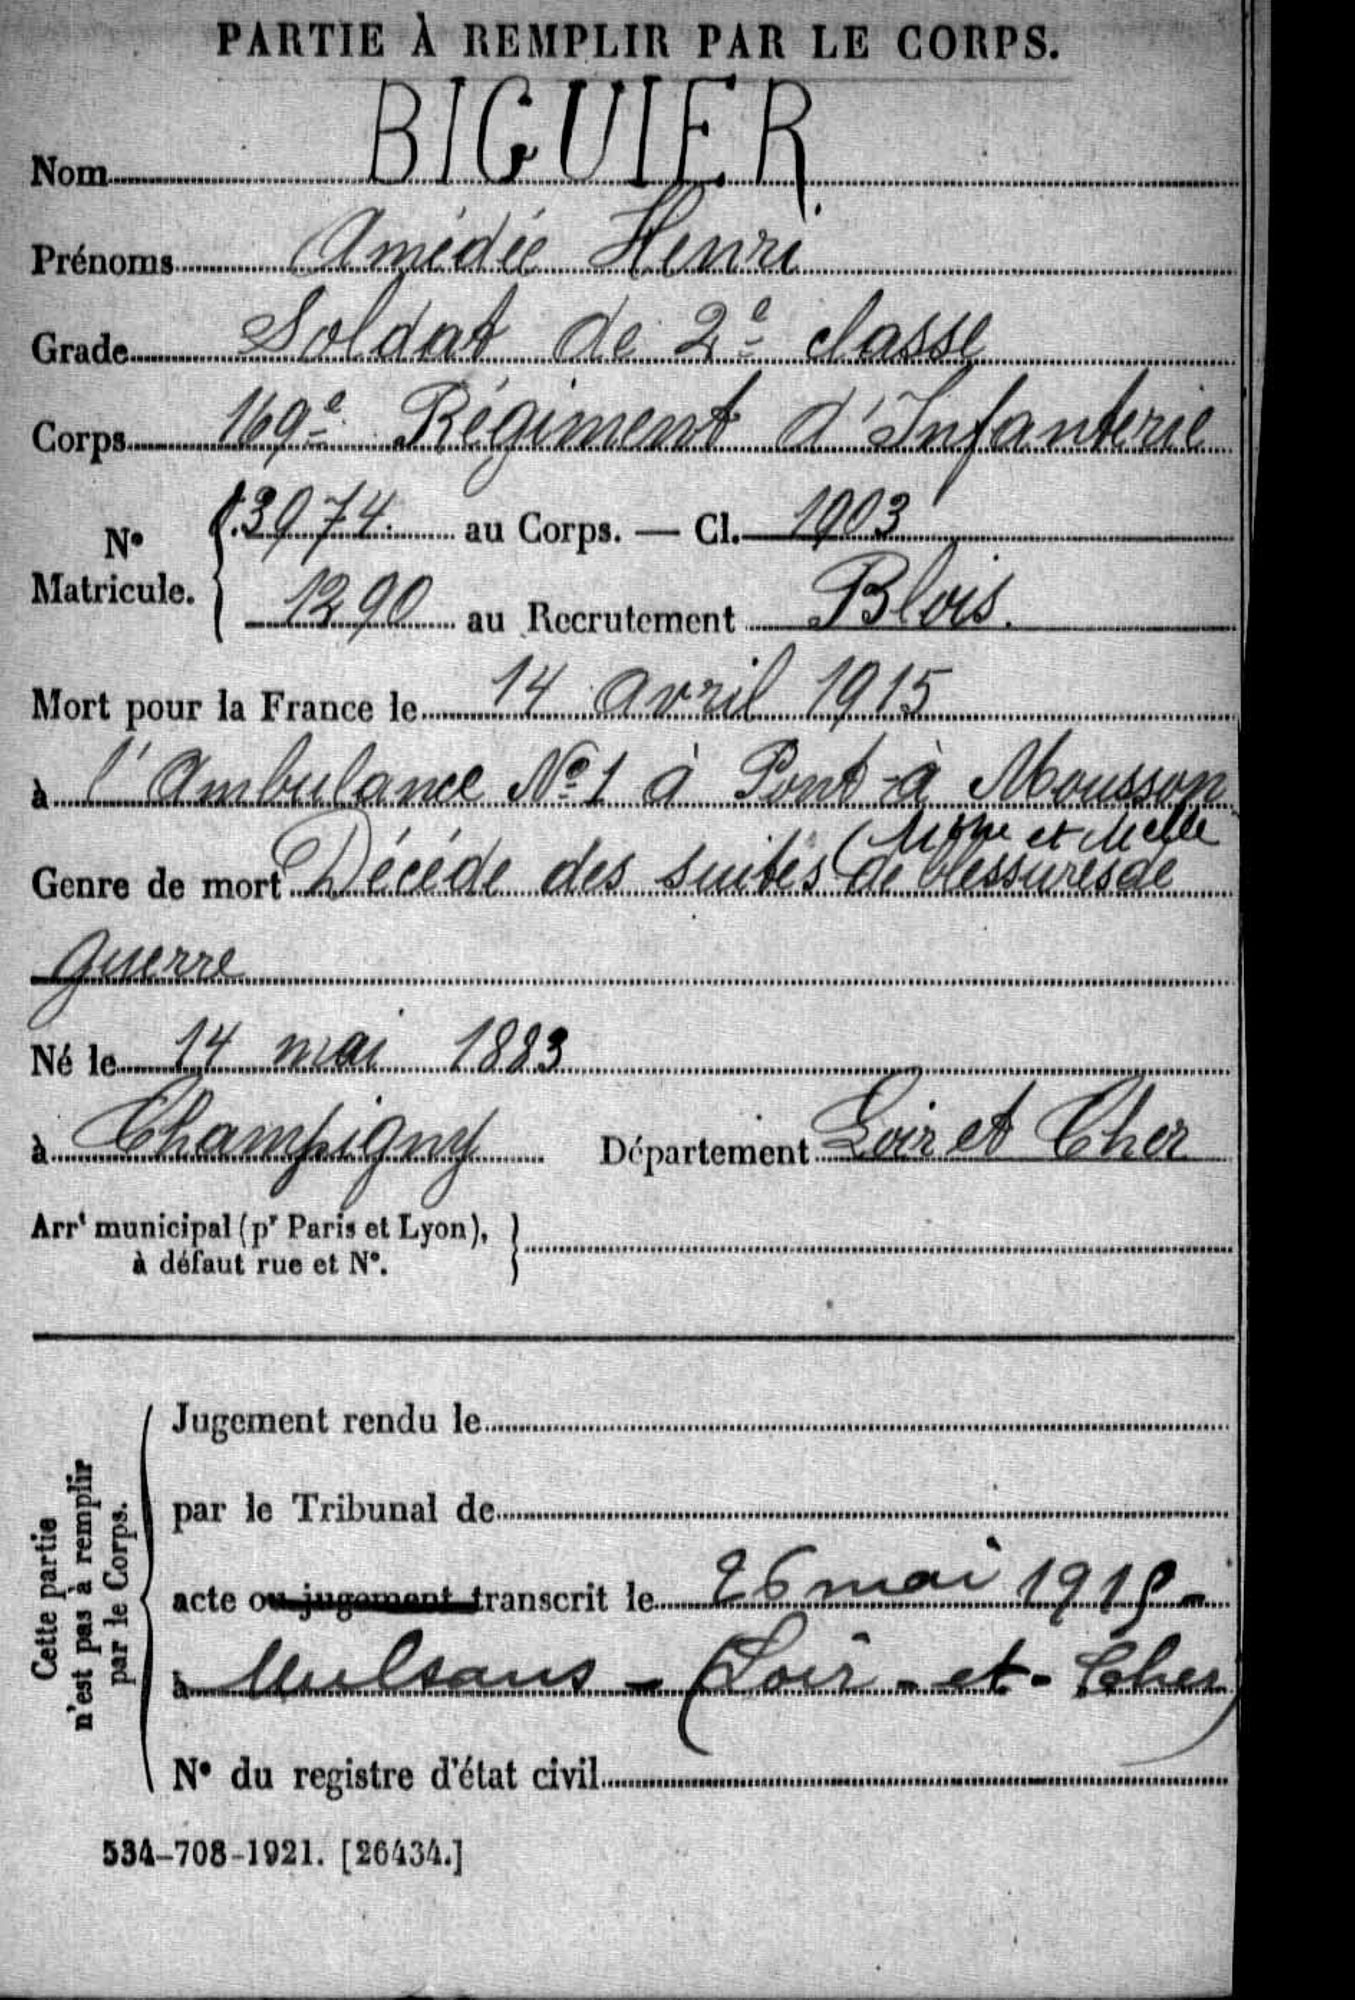 PARTIE À REMPLIR PAR LE CORPS.
Nom BIGUIER
Prénoms Amédée Henri
Grade Soldat de 2e classe
Corps 169e Régiment d'Infanterie
No Matricule. { 3974 au Corps. — Cl. 1903
1290 au Recrutement Blois.
Mort pour la France le 14 avril 1915
à l'Ambulance No 1 à Pont-à Mousson
(Mthe et Melle
Genre de mort Décédé des suites de blessures de
guerre
Né le 14 mai 1883
à Champigny Département Loir et Cher
Arrt municipal (pr Paris et Lyon), }
à défaut rue et No.
Cette partie
n'est pas à remplir
par le Corps.
Jugement rendu le
par le Tribunal de
acte ou jugement transcrit le 26 mai 1915 -
à Mulsans - (Loir-et-Cher)
No du registre d'état civil
534-708-1921. [26434.]